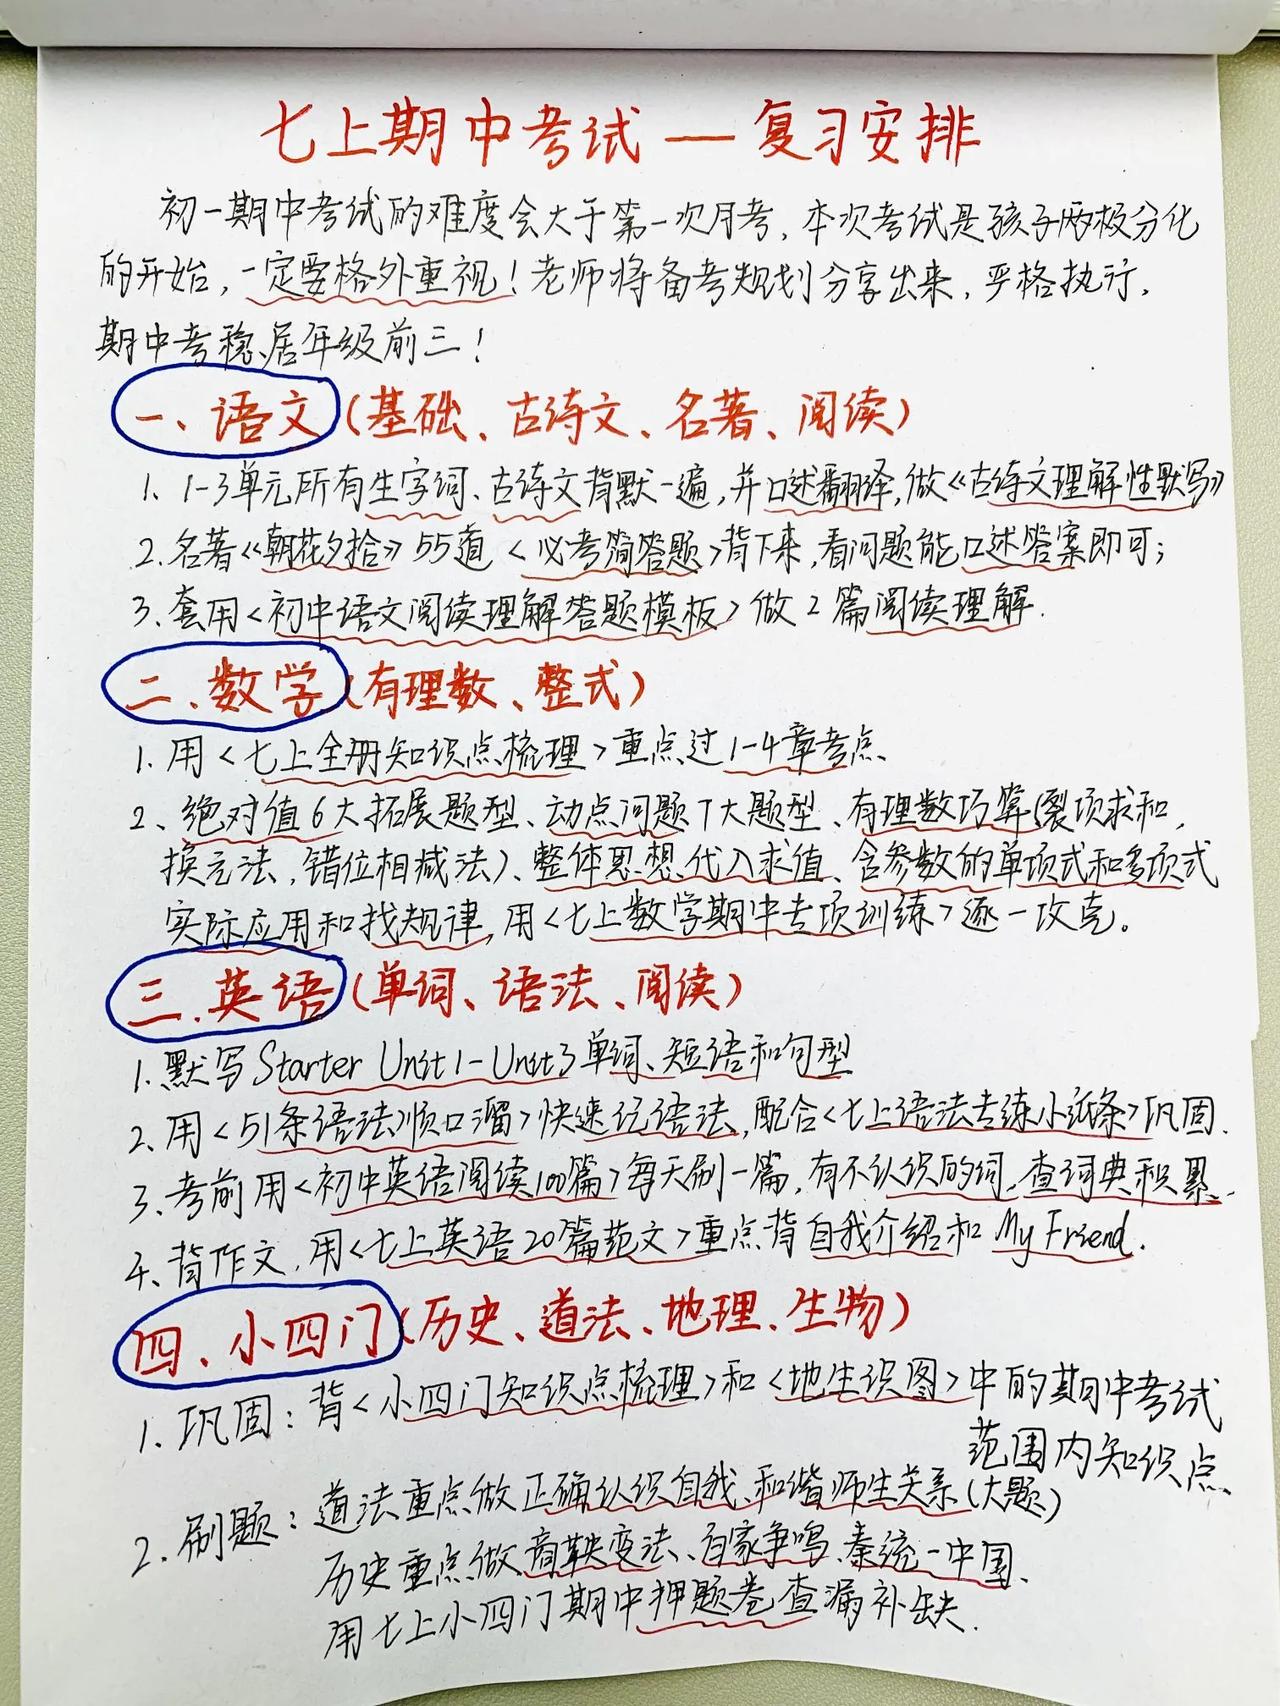 七上期中考试—复习安排
初一期中考试的难度会大于第一次月考，本次考试是孩子两极分化
的开始，一定要格外重视！老师将备考规划分享出来，严格执行，
期中考稳居年级前三！
一、语文(基础、古诗文、名著、阅读)
1、1-3单元所有生字词、古诗文背默一遍，并口述翻译，做《古诗文理解性默写》
2.名著《朝花夕拾》55道<必考简答题>背下来，看问题能口述答案即可；
3.套用<初中语文阅读理解答题模板>做2篇阅读理解.
二、数学(有理数、整式)
1.用<七上全册知识点梳理>重点过1-4章考点
2、绝对值6大拓展题型、动点问题7大题型、有理数巧算(裂项求和，
换元法，错位相减法)、整体思想代入求值、含参数的单项式和多项式
实际应用和找规律，用<七上数学期中专项训练>逐一攻克。
三.英语(单词、语法、阅读)
1.默写Starter Unit1-Unit3单词、短语和句型
2.用<51条语法顺口溜>快速记语法，配合<七上语法专练小纸条>巩固.
3.考前用<初中英语阅读100篇>每天刷一篇，有不认识的词，查词典积累.
4、背作文，用<七上英语20篇范文>重点背自我介绍和My Friend.
四、小四门(历史、道法、地理、生物)
1、巩固：背<小四门知识点梳理>和<地生识图>中的期中考试
范围内知识点
2.刷题：道法重点做正确认识自我、和谐师生关系(大题)
历史重点做商鞅变法、百家争鸣、秦统一中国、
用七上小四门期中押题卷查漏补缺.